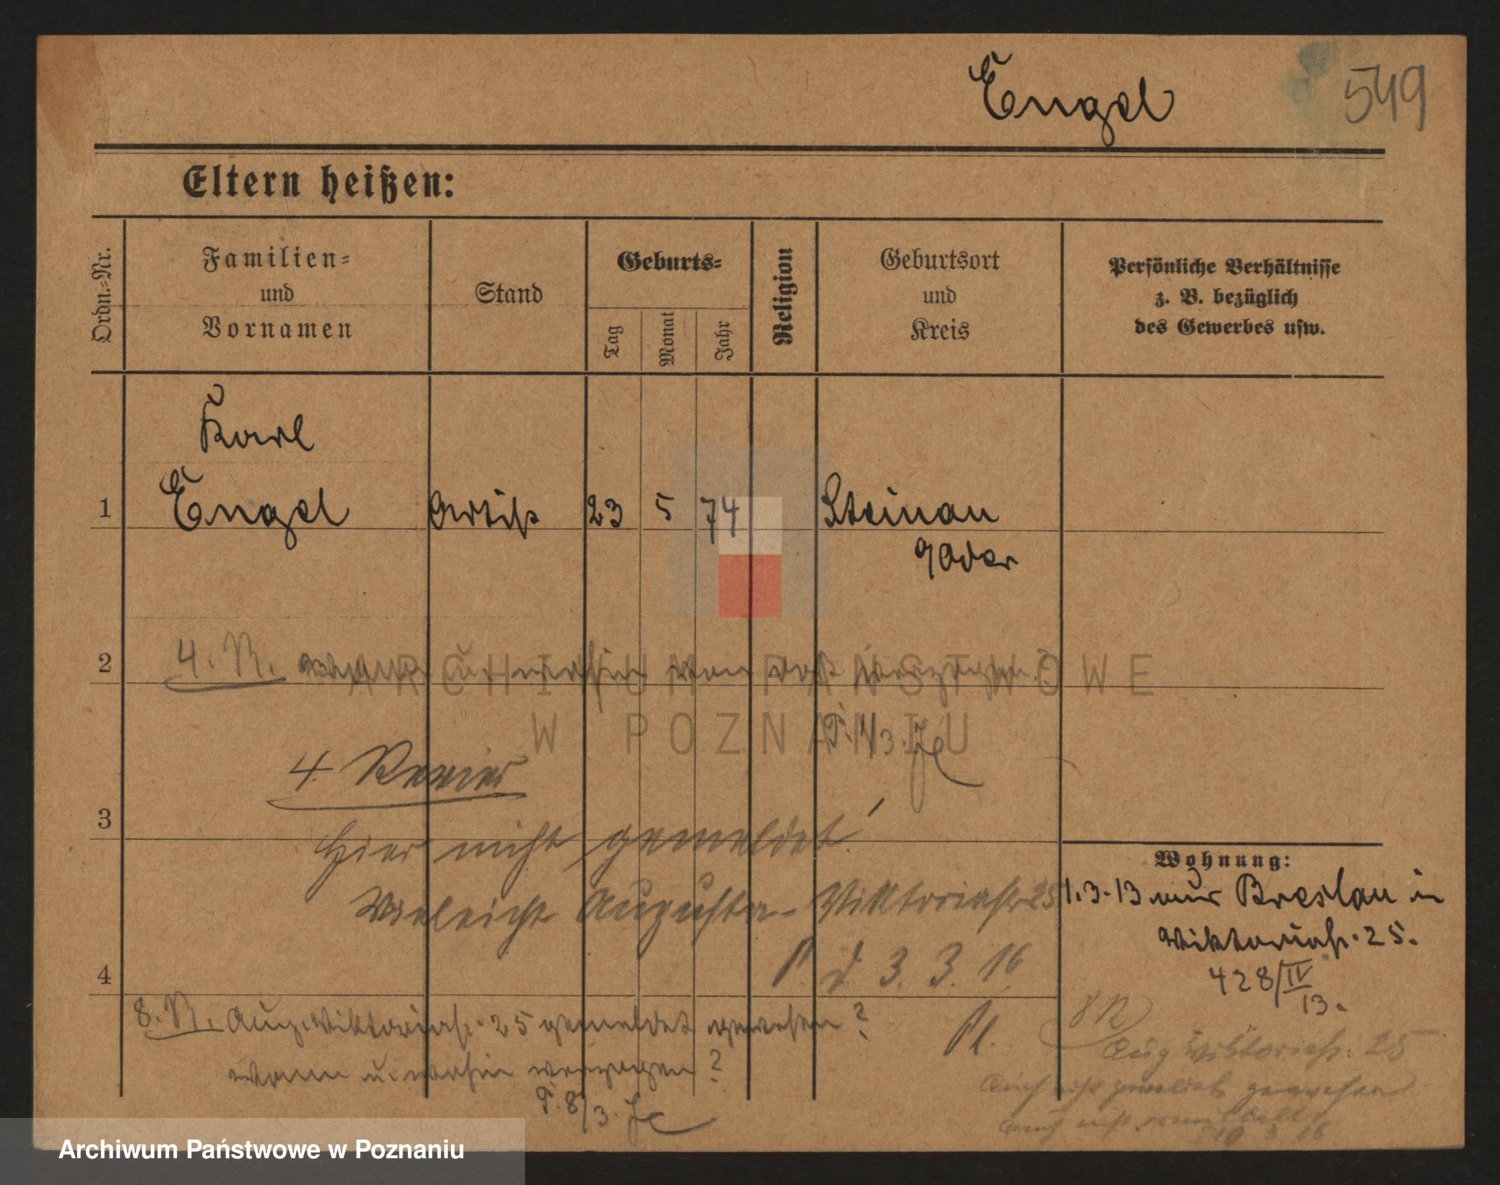 Engel
549
Eltern heißen:
Ordn.-Nr.
Familien-
und
Vornamen
Stand
Geburts-
Tag
Monat
Jahr
Religion
Geburtsort
und
Kreis
Persönliche Verhältnisse
z. B. bezüglich
des Gewerbes usw.
Karl
1 Engel Artist 23 5 74 Steinau
a/Oder
2 4. R. wann u. wohin von dort verzogen?
ARCHIWUM PAŃSTWOWE
W POZNANIU
F. 1/3.
4. Revier
3
Hier nicht gemeldet!
Vieleicht Augusta-Viktoriastr 25
P. d. 3. 3. 16.
4
8. R. Aug. Viktoriastr. 25 gemeldet gewesen?
wann u. wohin verzogen?
F. 8/3.
Wohnung:
1.3.13 aus Breslau in
Viktoriastr. 25.
428/IV
13.
8 R
Aug Viktoriastr. 25
auch nicht gemeldet gewesen
auch nicht
Archiwum Państwowe w Poznaniu